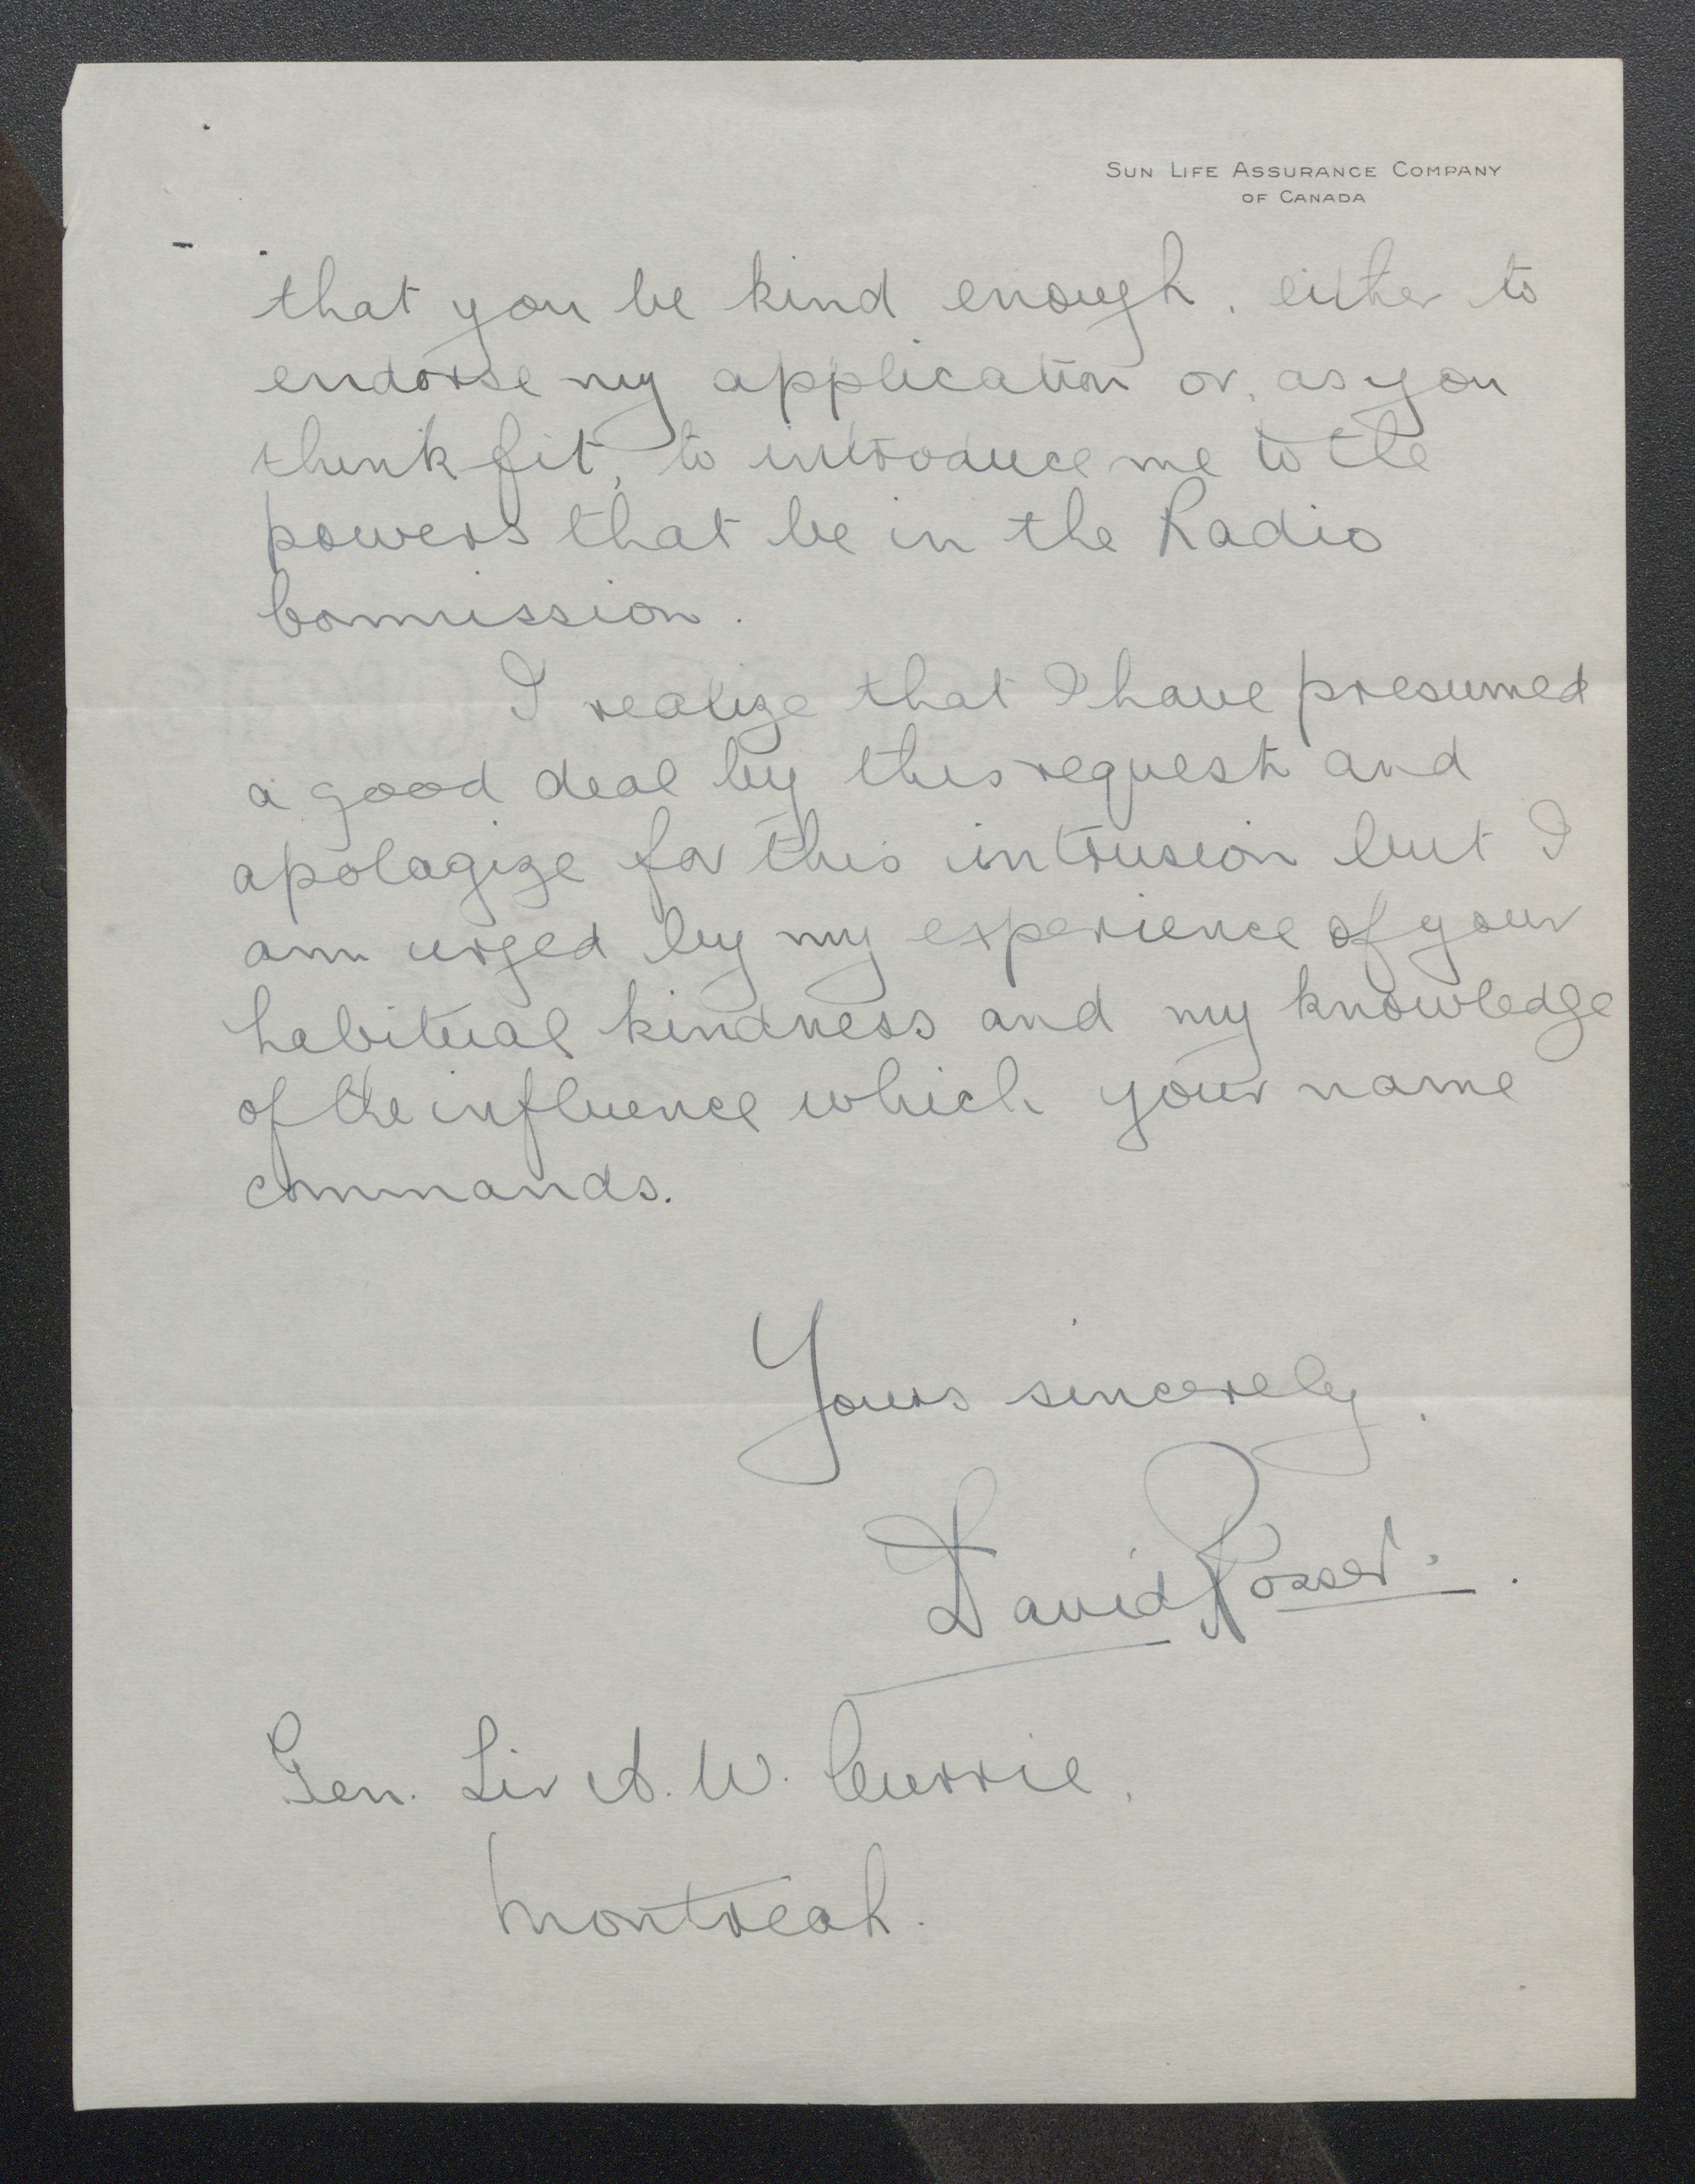 SUN LIFE ASSURANCE COMPANY
OF CANADA
that you be kind enough, either to
endorse my application or, as you
think fit, to introduce me to the
powers that be in the Radio
Commission.
I realize that I have presumed
a good deal by this request and
apologize for this intrusion but I
am urged by my experience of your
habitual kindness and my knowledge
of the influence which your name
commands.
Yours sincerely,
David Rosser.
Gen. Sir A. W. Currie,
Montreal.